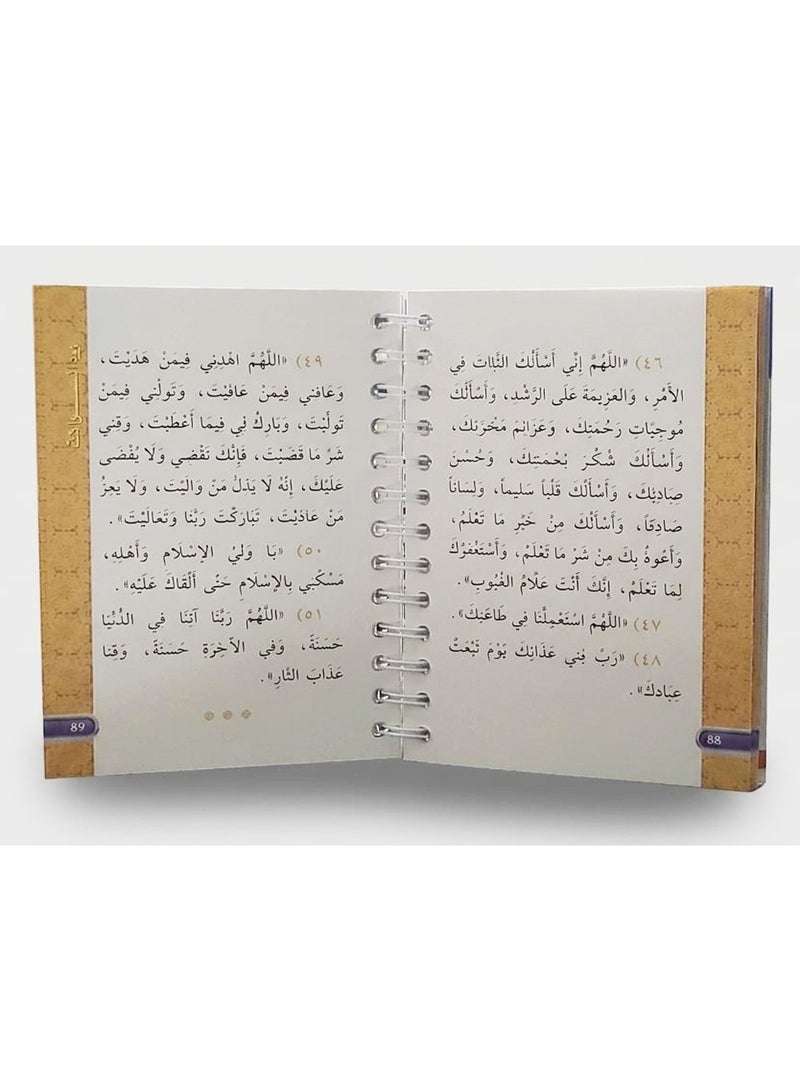 ٤٦) «اللَّهُمَّ إِنِّي أَسْأَلُكَ الثَّبَاتَ فِي
الأَمْرِ، وَالعَزِيمَةَ عَلَى الرَّشْدِ، وَأَسْأَلُكَ
مُوجِبَاتِ رَحْمَتِكَ، وَعَزَائِمَ مَغْفِرَتِكَ،
وَأَسْأَلُكَ شُكْرَ نِعْمَتِكَ، وَحُسْنَ
عِبَادَتِكَ، وَأَسْأَلُكَ قَلْباً سَلِيماً، وَلِسَاناً
صَادِقاً، وَأَسْأَلُكَ مِنْ خَيْرِ مَا تَعْلَمُ،
وَأَعُوذُ بِكَ مِنْ شَرِّ مَا تَعْلَمُ، وَأَسْتَغْفِرُكَ
لِمَا تَعْلَمُ، إِنَّكَ أَنْتَ عَلَّامُ الغُيُوبِ».
٤٧) «اللَّهُمَّ اسْتَعْمِلْنَا فِي طَاعَتِكَ».
٤٨) «رَبِّ قِنِي عَذَابَكَ يَوْمَ تَبْعَثُ
عِبَادَكَ».
88
٤٩) «اللَّهُمَّ اهْدِنِي فِيمَنْ هَدَيْتَ،
وَعَافِنِي فِيمَنْ عَافَيْتَ، وَتَوَلَّنِي فِيمَنْ
تَوَلَّيْتَ، وَبَارِكْ لِي فِيمَا أَعْطَيْتَ، وَقِنِي
شَرَّ مَا قَضَيْتَ، فَإِنَّكَ تَقْضِي وَلَا يُقْضَى
عَلَيْكَ، إِنَّهُ لَا يَذِلُّ مَنْ وَالَيْتَ، وَلَا يَعِزُّ
مَنْ عَادَيْتَ، تَبَارَكْتَ رَبَّنَا وَتَعَالَيْتَ».
٥٠) «يَا وَلِيَّ الإِسْلَامِ وَأَهْلِهِ،
مَسِّكْنِي بِالإِسْلَامِ حَتَّى أَلْقَاكَ عَلَيْهِ».
٥١) «اللَّهُمَّ رَبَّنَا آتِنَا فِي الدُّنْيَا
حَسَنَةً، وَفِي الآخِرَةِ حَسَنَةً، وَقِنَا
عَذَابَ النَّارِ».
89